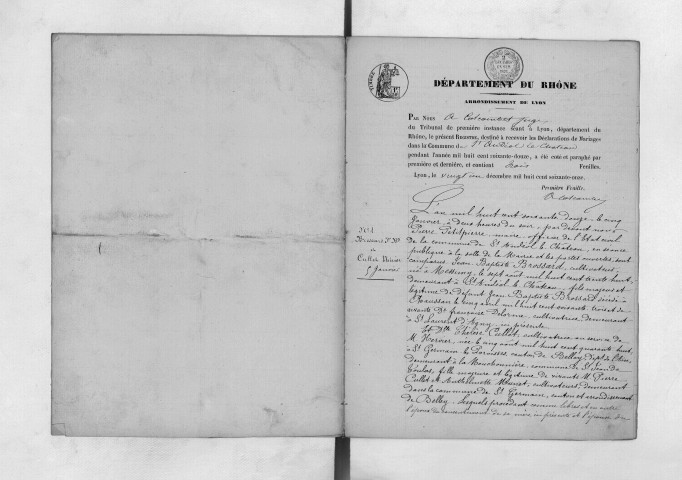 DÉPARTEMENT DU RHÔNE
ARRONDISSEMENT DE LYON
PAR NOUS A Colcombet juge
du Tribunal de première instance séant à Lyon, département du
Rhône, le présent REGISTRE, destiné à recevoir les Déclarations de Mariages
dans la Commune de St Andéol le Château
pendant l'année mil huit cent soixante-douze, a été coté et paraphé par
première et dernière, et contient trois Feuilles.
Lyon, le vingt un décembre mil huit cent soixante-onze.
Première Feuille.
A Colcombet
N° 1
Brossard Jn Bte
à
Cullet Thérèse
5 Janvier
L'an mil huit cent soixante douze, le cinq
Janvier à deux heures du soir, par devant nous
Pierre Petitpierre, maire, officier de l'Etat civil
de la commune de St Andéol le Château, en séance
publique à la salle de la Mairie et les portes ouvertes, sont
comparus Jean Baptiste Brossard, cultivateur,
né à Messimy, le sept août mil huit cent trente huit,
demeurant à St Andéol le Château, fils majeur et
légitime de défunt Jean Baptiste Brossard décédé à
Chaussan le cinq août mil huit cent soixante trois et de
vivante Dme françoise Delorme, cultivatrice, demeurant
à St Laurent d'Agny, ici présente
Et Dlle Thérèse Cullet, cultivatrice au service de
M. née le cinq août mil huit cent quarante huit,
à St Germain le canton de Belley dépt de l'Ain,
demeurant à la commune de St Jean de
Toulas, fille majeure et légitime de vivants M. Pierre
Cullet et cultivateurs, demeurant
dans la commune de St Germain, canton et arrondissement
de Belley. Lesquels procédant comme libres et en outre
l'époux du consentement de sa mère ici présente et l'épouse